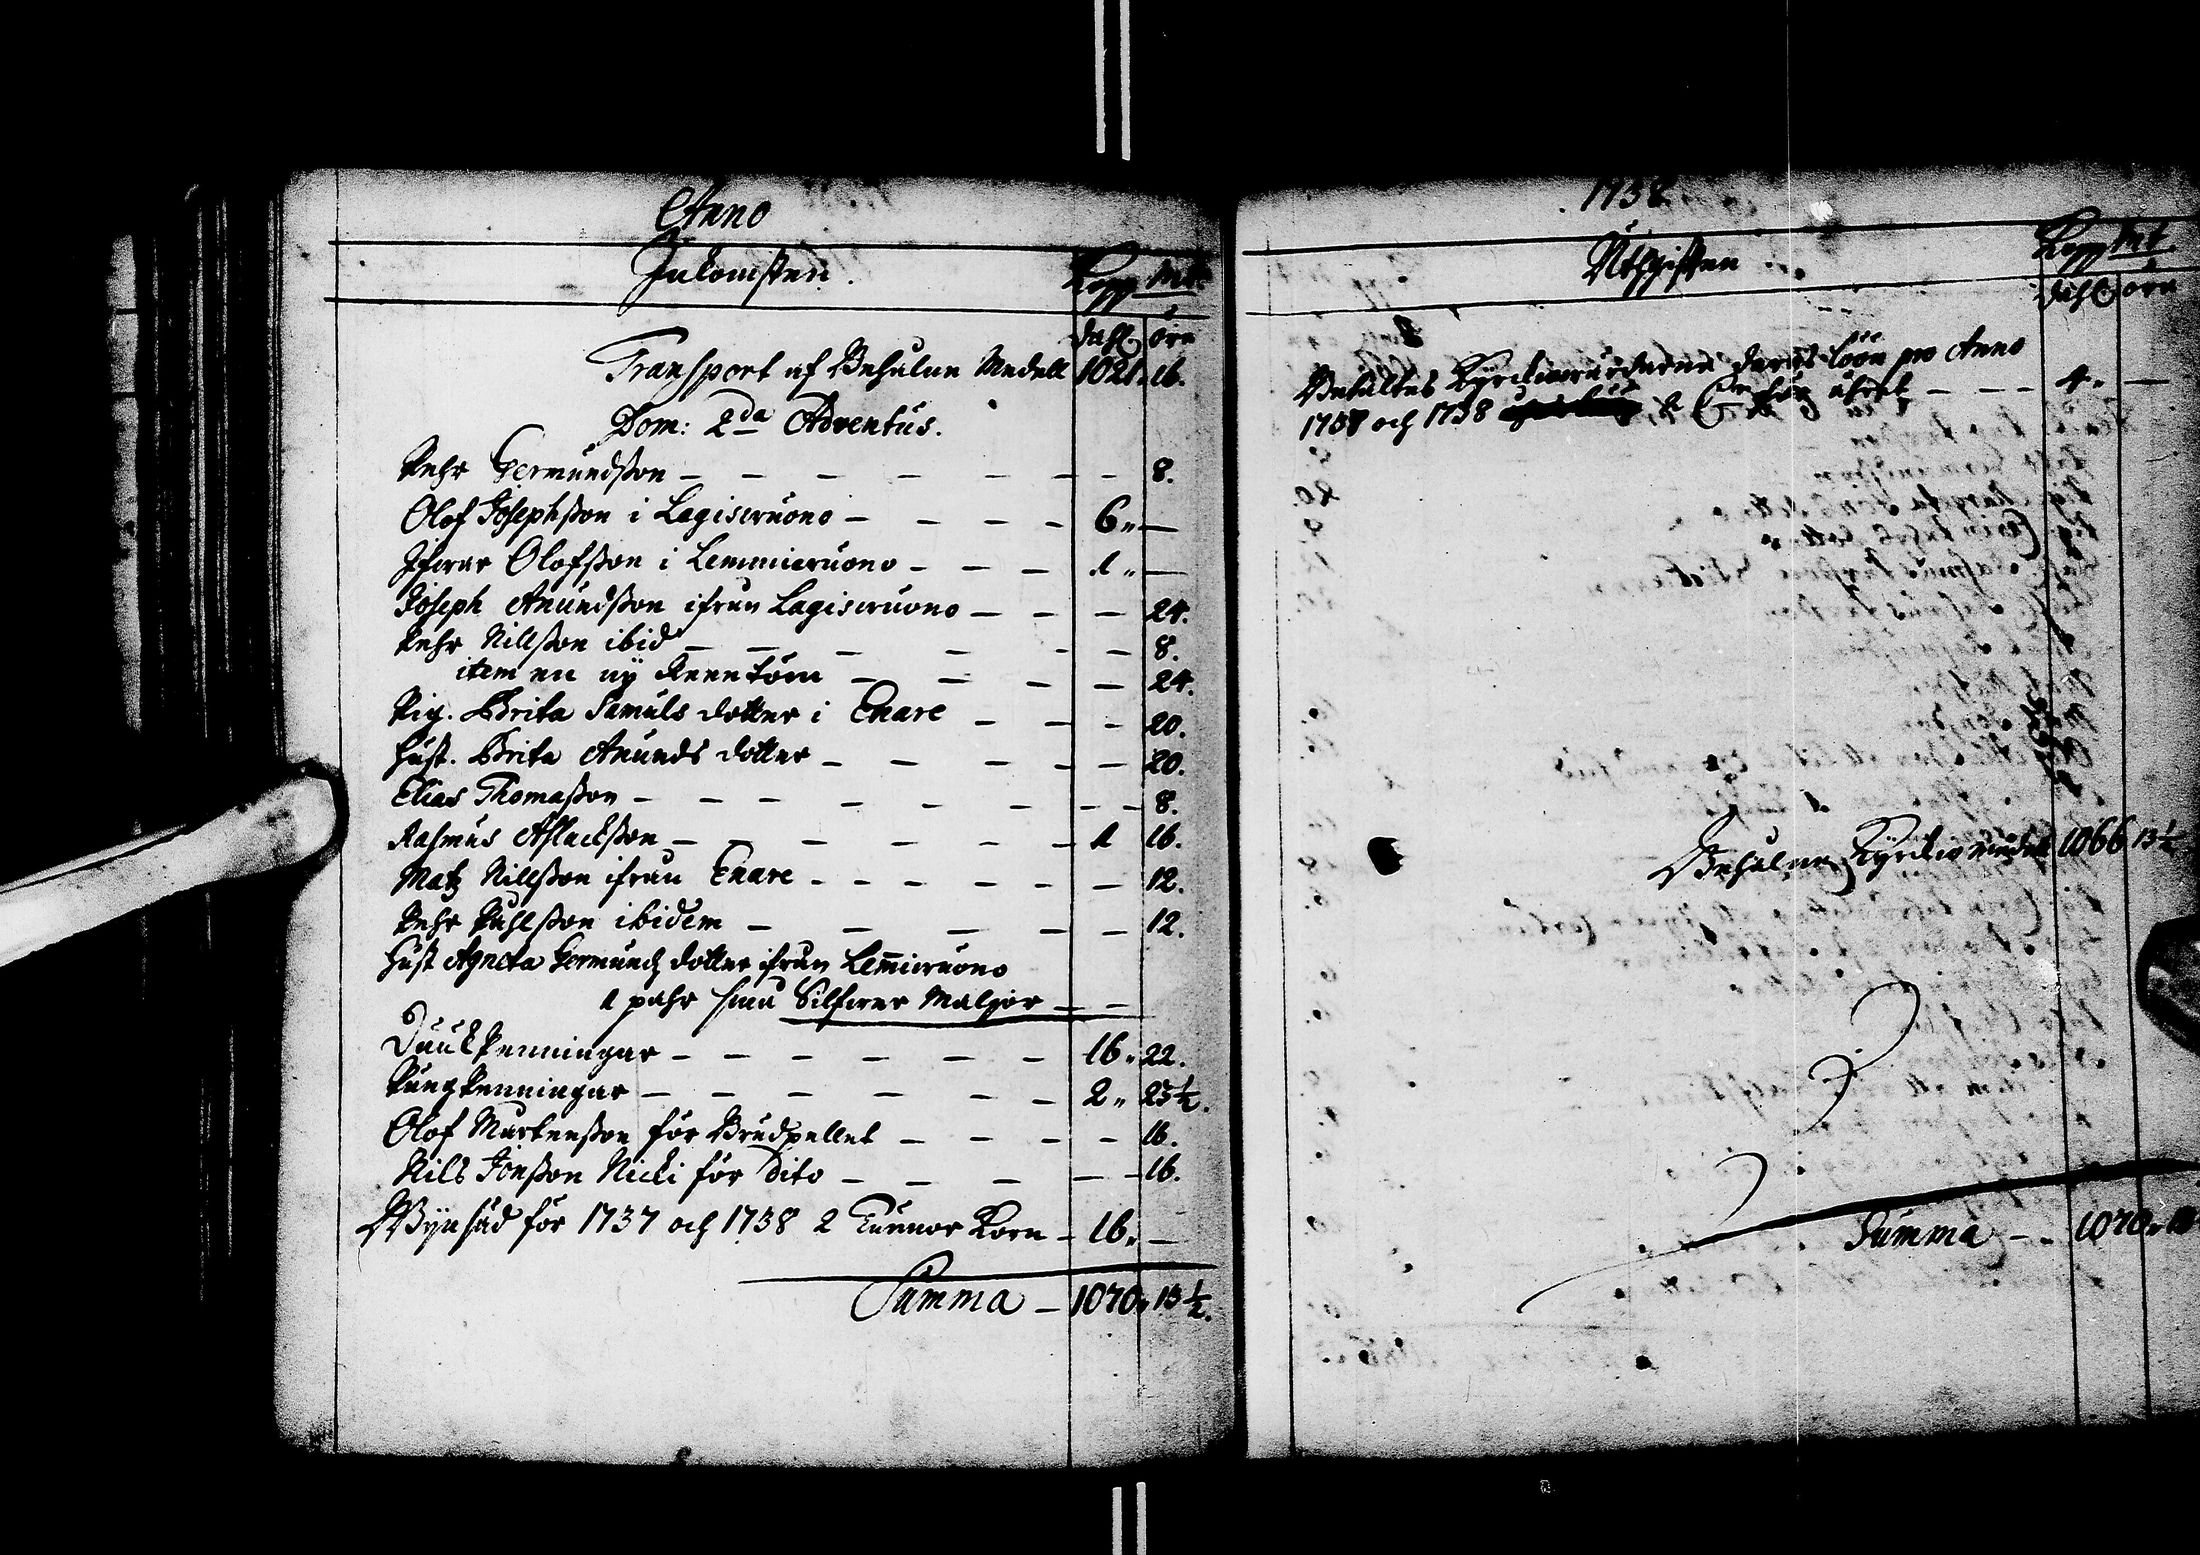 Anno
Inkomsten.
Kopp Mt.
dahl öre
Transport af Behåldne Medell 1021. 16.
Dom: 2da Adventus.
Pehr Germundsson — — — 8.
Olof Josephsson i Lagiswuono — — — 6. —
Ifwar Olofsson i Lemmiwuono — — — 1. —
Joseph Anundsson ifrån Lagiswuono — — — 24.
Pehr Nillsson ibid — — — 8.
item en ny Reentöm — — — 24.
Pig. Brita Samuls dotter i Enare — — — 20.
Hust. Brita Anunds dotter — — — 20.
Elias Thomasson — — — 8.
Rasmus Aslacksson — — — 1 16.
Matz Nillsson ifrån Enare — — — 12.
Pehr Påhlsson ibidem — — — 12.
Hust Agneta Germundz dotter ifrån Lemmiwuono
1 pahr små Silfwer Maljor — —
Duukpenningar — — — 16. 22.
Pungpenningar — — — 2. 23½.
Olof Mårtensson för Brudpellet — — — 16.
Nils Jonsson Nicki för Dito — — — 16.
Wijnsäd för 1737 och 1738 2 Tunnor Korn — 16. —
Summa — 1070. 13½.
1738
Uthgiften
Kopp Mt.
dahl öre
Betaltes Kyrckiowärdarne deras löön pro Anno
1737 och 1738 2 för åhret — — — 4. —
Behåldne Kyrckio medel 1066 13½
Summa — 1070.